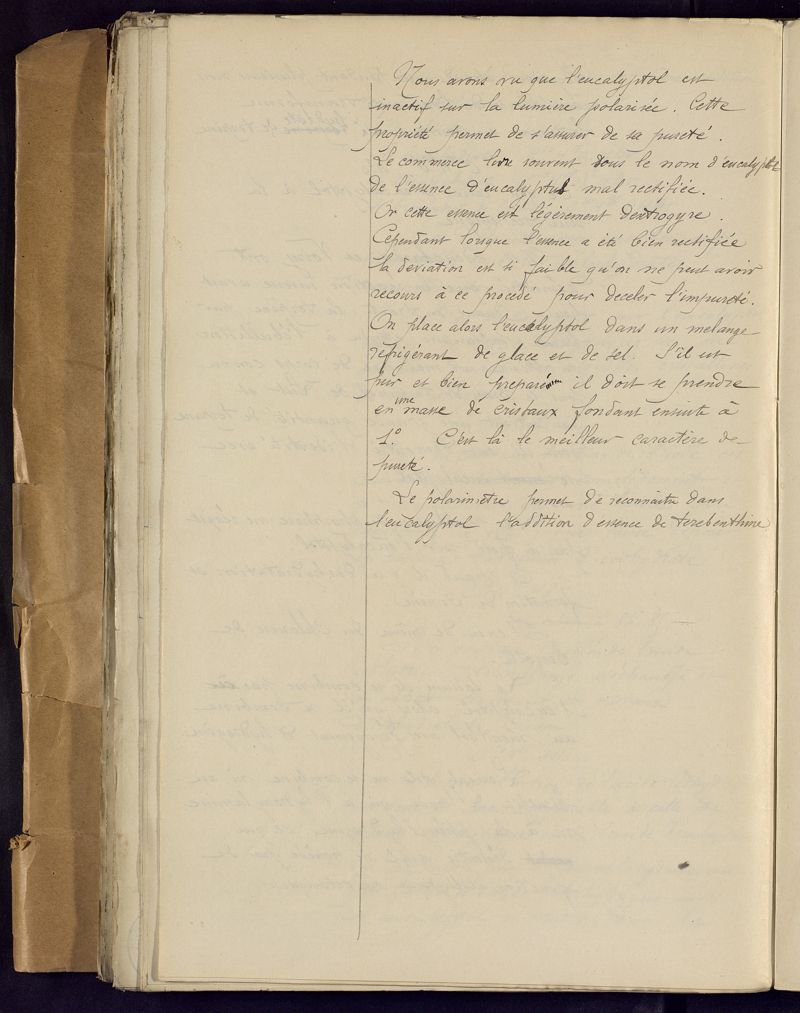 Nous avons vu que l'eucalyptol est
inactif sur la lumière polarisée. Cette
propriété permet de s'assurer de sa pureté.
Le commerce livre souvent sous le nom d'eucalyptol
de l'essence d'eucalyptus mal rectifiée.
Or cette essence est légèrement dextrogyre.
Cependant lorsque l'essence a été bien rectifiée
la deviation est si faible qu'on ne peut avoir
recours à ce procédé pour deceler l'impureté.
On place alors l'eucalyptol dans un melange
réfrigérant de glace et de sel. S'il est
pur et bien preparé il doit se prendre
en une masse de cristaux fondant ensuite à
1°. C'est là le meilleur caractère de
pureté.
Le polarimètre permet de reconnaitre dans
l'eucalyptol l'addition d'essence de terebenthine